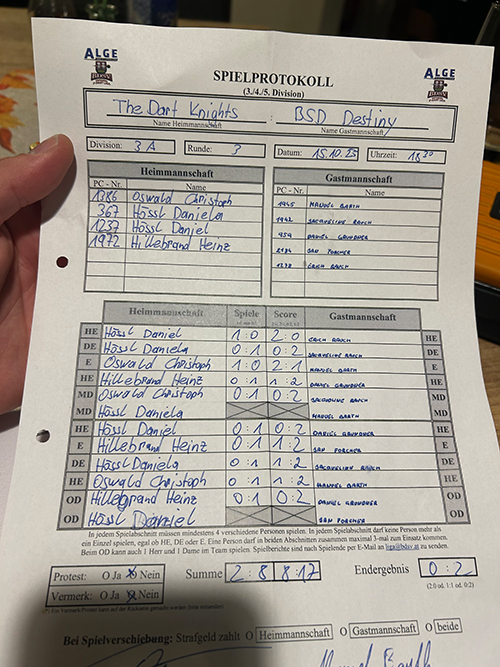 ALGE ALGE
SPIELPROTOKOLL
(3./4./5. Division)
The Dart Knights : BSD Destiny
Name Heimmannschaft Name Gastmannschaft
Division: 3 A Runde: 3 Datum: 15.10.25 Uhrzeit: 18 30
Heimmannschaft Gastmannschaft
PC - Nr. Name PC - Nr. Name
1386 Oswald Christoph 1945 MANUEL BARTH
367 Hössl Daniela 1942 JACQUELINE RAUCH
1237 Hössl Daniel 959 DANIEL GRUNDNER
1972 Hillebrand Heinz JAN FORCHER
1278 ERICH RAUCH
Heimmannschaft Spiele Score Gastmannschaft
HE Hössl Daniel 1:0 2:0 ERICH RAUCH HE
DE Hössl Daniela 0:1 0:2 JACQUELINE RAUCH DE
E Oswald Christoph 1:0 2:1 MANUEL BARTH E
HE Hillebrand Heinz 0:1 1:2 DANIEL GRUNDNER HE
MD Oswald Christoph 0:1 0:2 JACQUELINE RAUCH MD
MD Hössl Daniela MANUEL BARTH MD
HE Hössl Daniel 0:1 0:2 DANIEL GRUNDNER HE
E Hillebrand Heinz 0:1 1:2 JAN FORCHER E
DE Hössl Daniela 0:1 1:2 JACQUELINE RAUCH DE
HE Oswald Christoph 0:1 1:2 MANUEL BARTH HE
OD Hillebrand Heinz 0:1 0:2 DANIEL GRUNDNER OD
OD Hössl Daniel JAN FORCHER OD
In jedem Spielabschnitt müssen mindestens 4 verschiedene Personen spielen. In jedem Spielabschnitt darf keine Person mehr als
ein Einzel spielen, egal ob HE, DE oder E. Eine Person darf in beiden Abschnitten zusammen maximal 3-mal zum Einsatz kommen.
Beim OD kann auch 1 Herr und 1 Dame im Team spielen. Spielberichte sind nach Spielende per E-Mail an liga@bdsv.at zu senden.
Protest: O Ja O Nein Summe 2:8 8:17 Endergebnis 0:2
Vermerk: O Ja O Nein (2:0 od. 1:1 od. 0:2)
(*) Ein Vermerk/Protest kann auf der Rückseite genauer verfasst werden
Bei Spielverschiebung: Strafgeld zahlt O Heimmannschaft O Gastmannschaft O beide